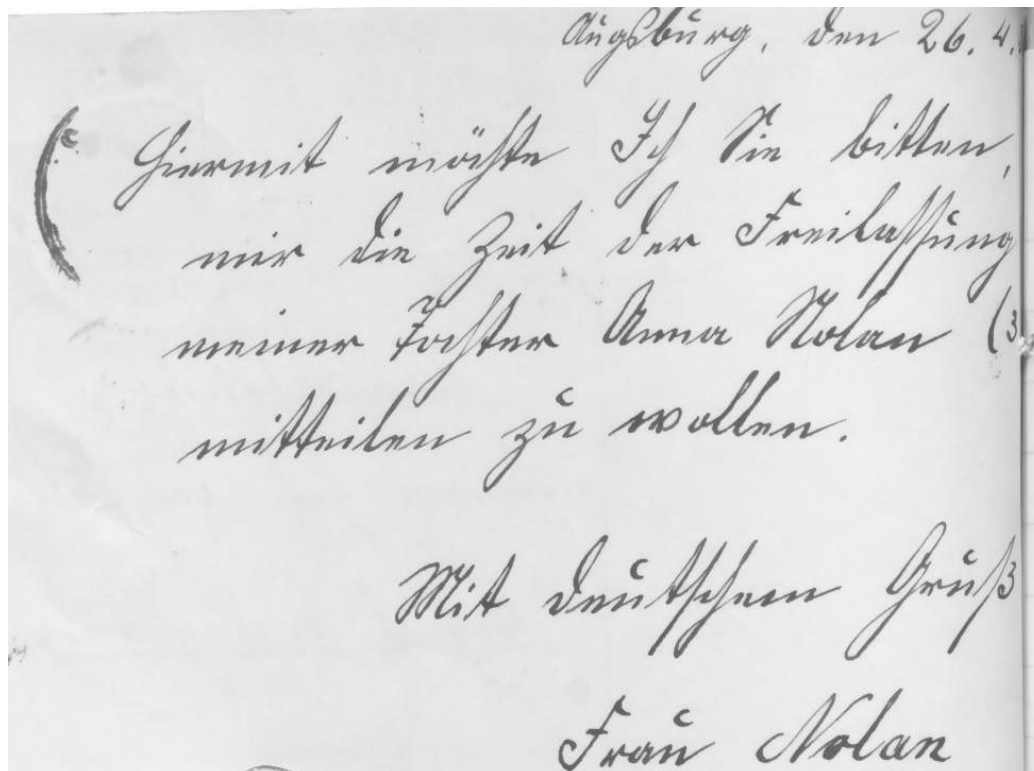 Augsburg, den 26. 4.
Hiermit möchte Ich Sie bitten,
mir die Zeit der Freilassung
meiner Tochter Anna Nolan (3
mitteilen zu wollen.
Mit deutschem Gruß
Frau Nolan